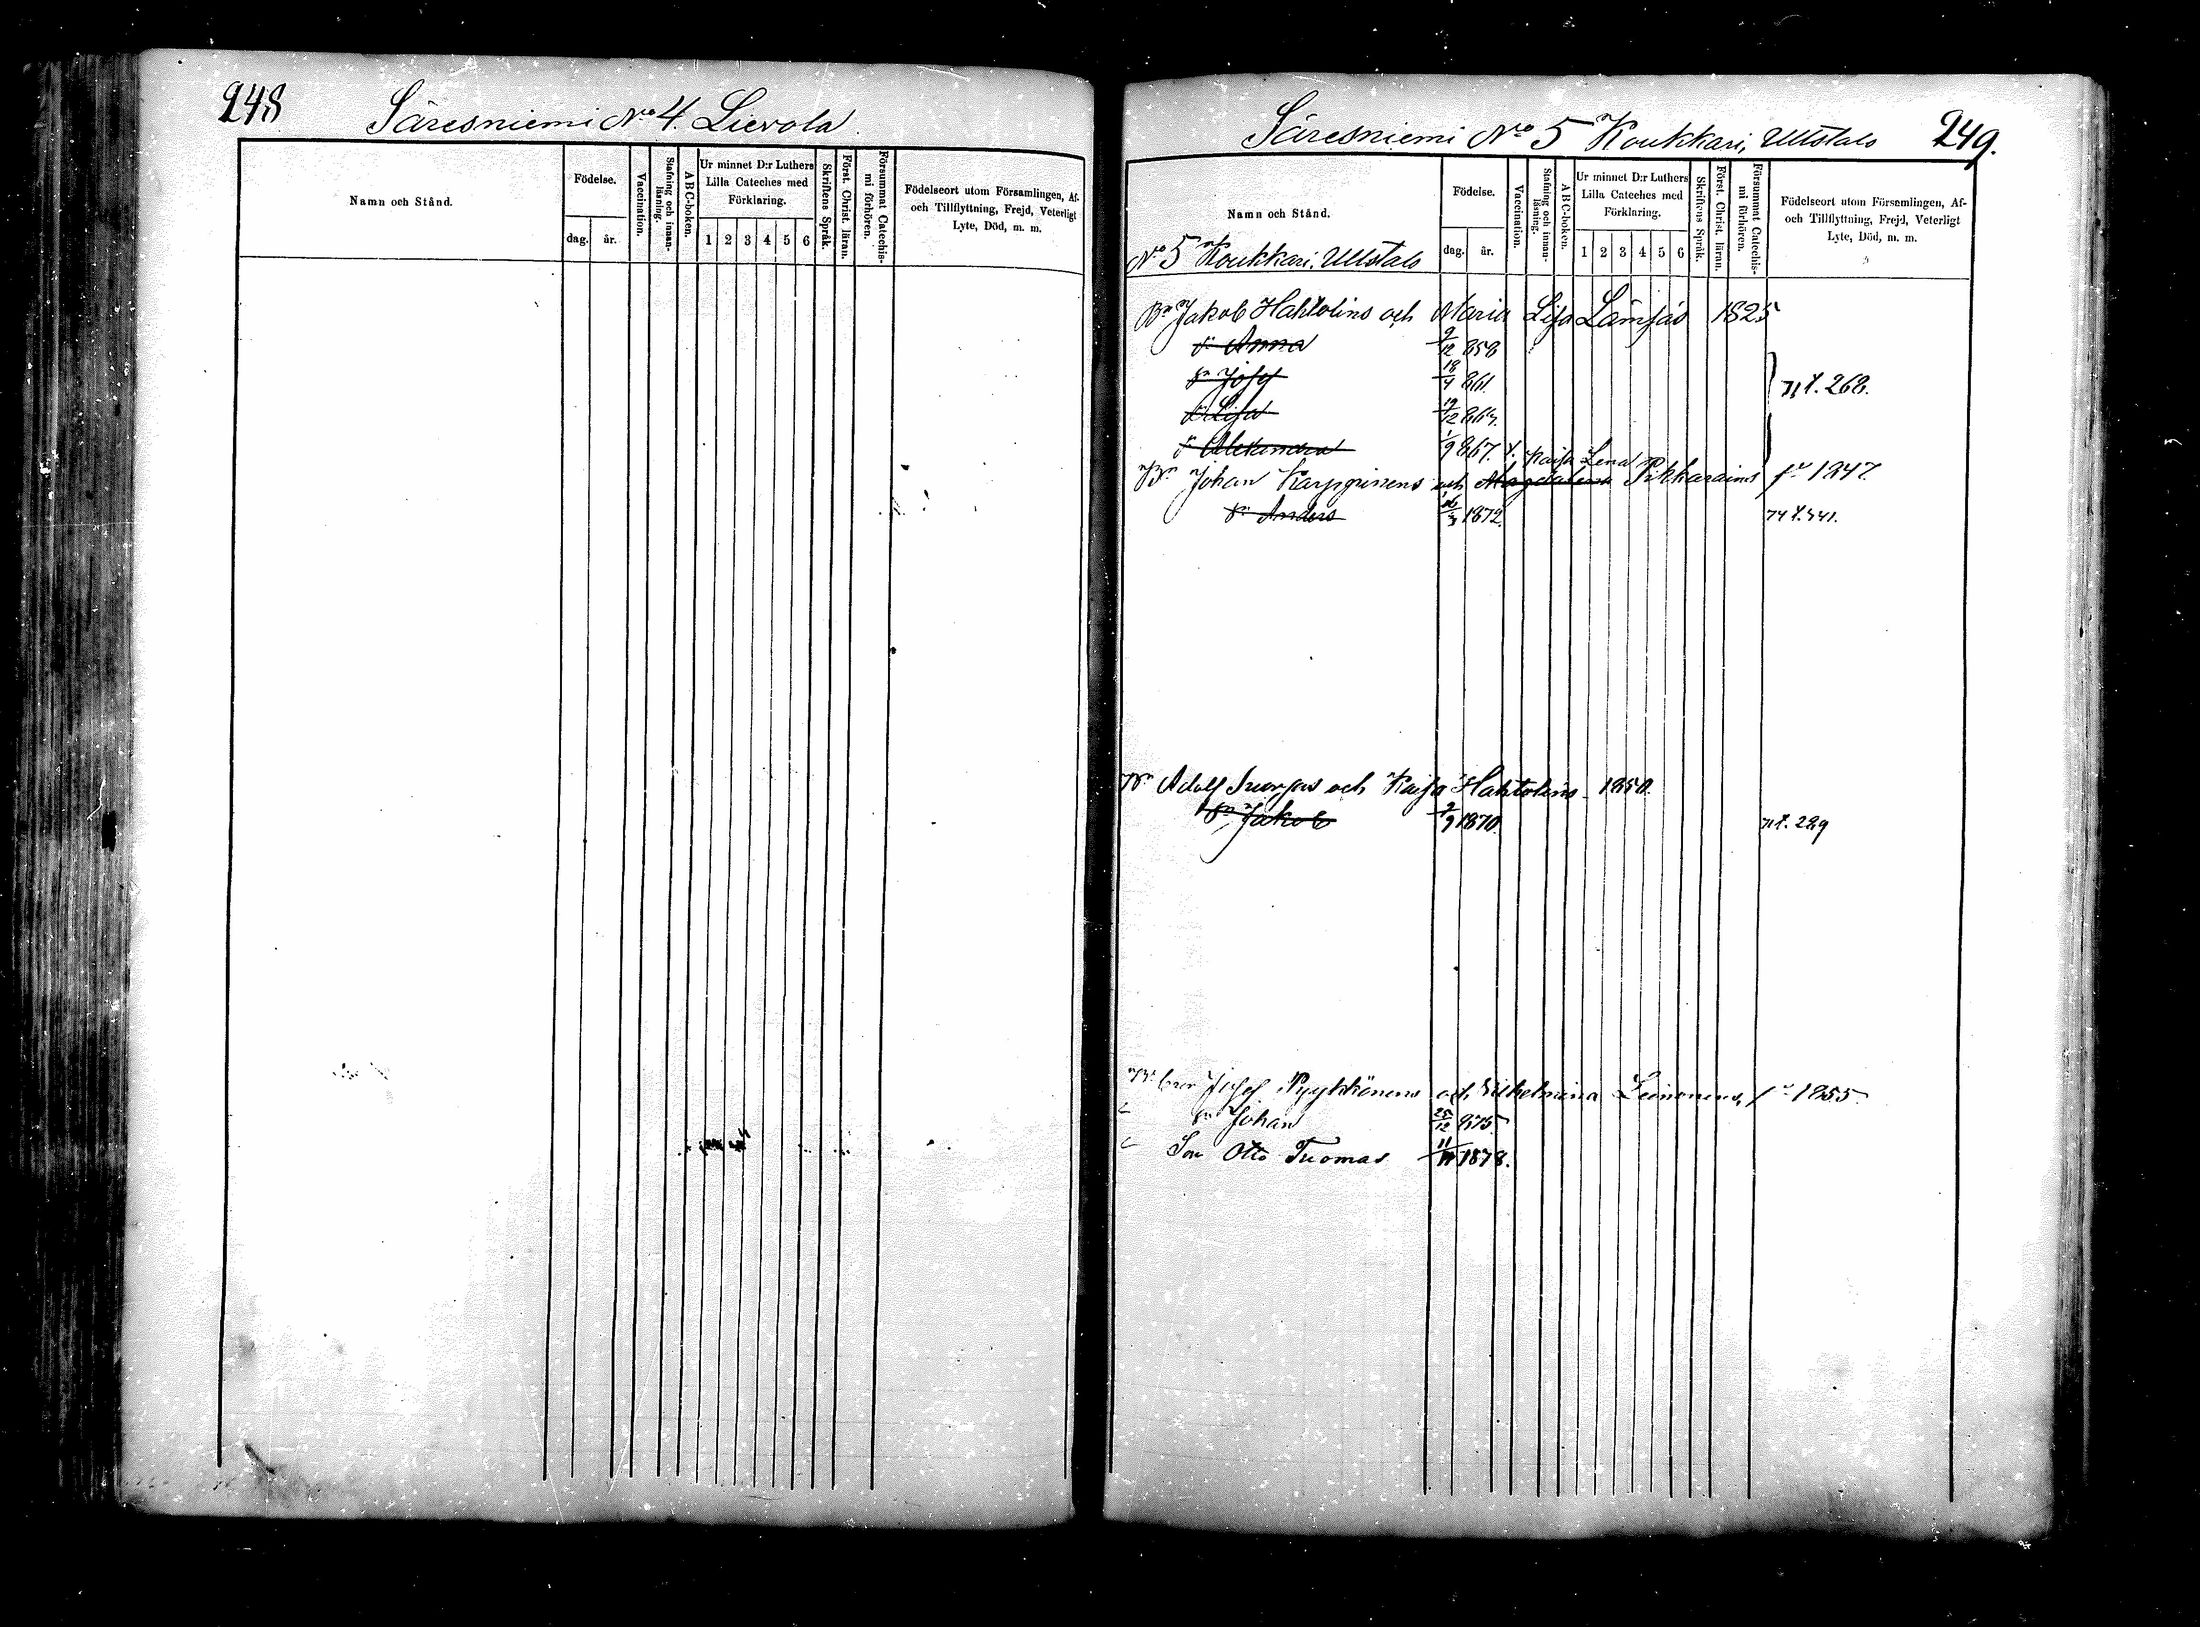 248 Säresniemi No 4. Lievola.
Namn och Stånd.
Födelse.
dag. år.
Vaccination.
Stafning och innan-läsning.
ABC-boken.
Ur minnet D:r Luthers
Lilla Cateches med
Förklaring.
1 2 3 4 5 6
Skriftens Språk.
Först. Christ. läran.
Försummat Catechis-mi förhören.
Födelseort utom Församlingen, Af-
och Tillflyttning, Frejd, Veterligt
Lyte, Död, m. m.
Säresniemi No 5 Koukkari, Ullstals 249.
Namn och Stånd.
No 5 Koukkari, Ullstals
Födelse.
dag. år.
Vaccination.
Stafning och innan-läsning.
ABC-boken.
Ur minnet D:r Luthers
Lilla Cateches med
Förklaring.
1 2 3 4 5 6
Skriftens Språk.
Först. Christ. läran.
Försummat Catechis-mi förhören.
Födelseort utom Församlingen, Af-
och Tillflyttning, Frejd, Veterligt
Lyte, Död, m. m.
Bn Jakob Hahtolins och Maria Lisa Lämsäs 1825
dr Anna 9/12 858
sn Josef 18/4 861. 71 t. 268.
dr Lisa 19/12 864.
dr Alexandra 1/9 867.
Kaisa Lena
Bn Johan Karppinens och Magdalena Pikkarains f. 1847.
sn Anders 1872. 74 t. 341.
Adolf och Kaisa Hahtolins 1850.
sn Jakob 9 1870. 71 t. 289
Josef Pyykkönens och Wilhelmina Leinonens, f. 1855.
sn Johan 25/12 875
Son Otto Tuomas 11 1878.